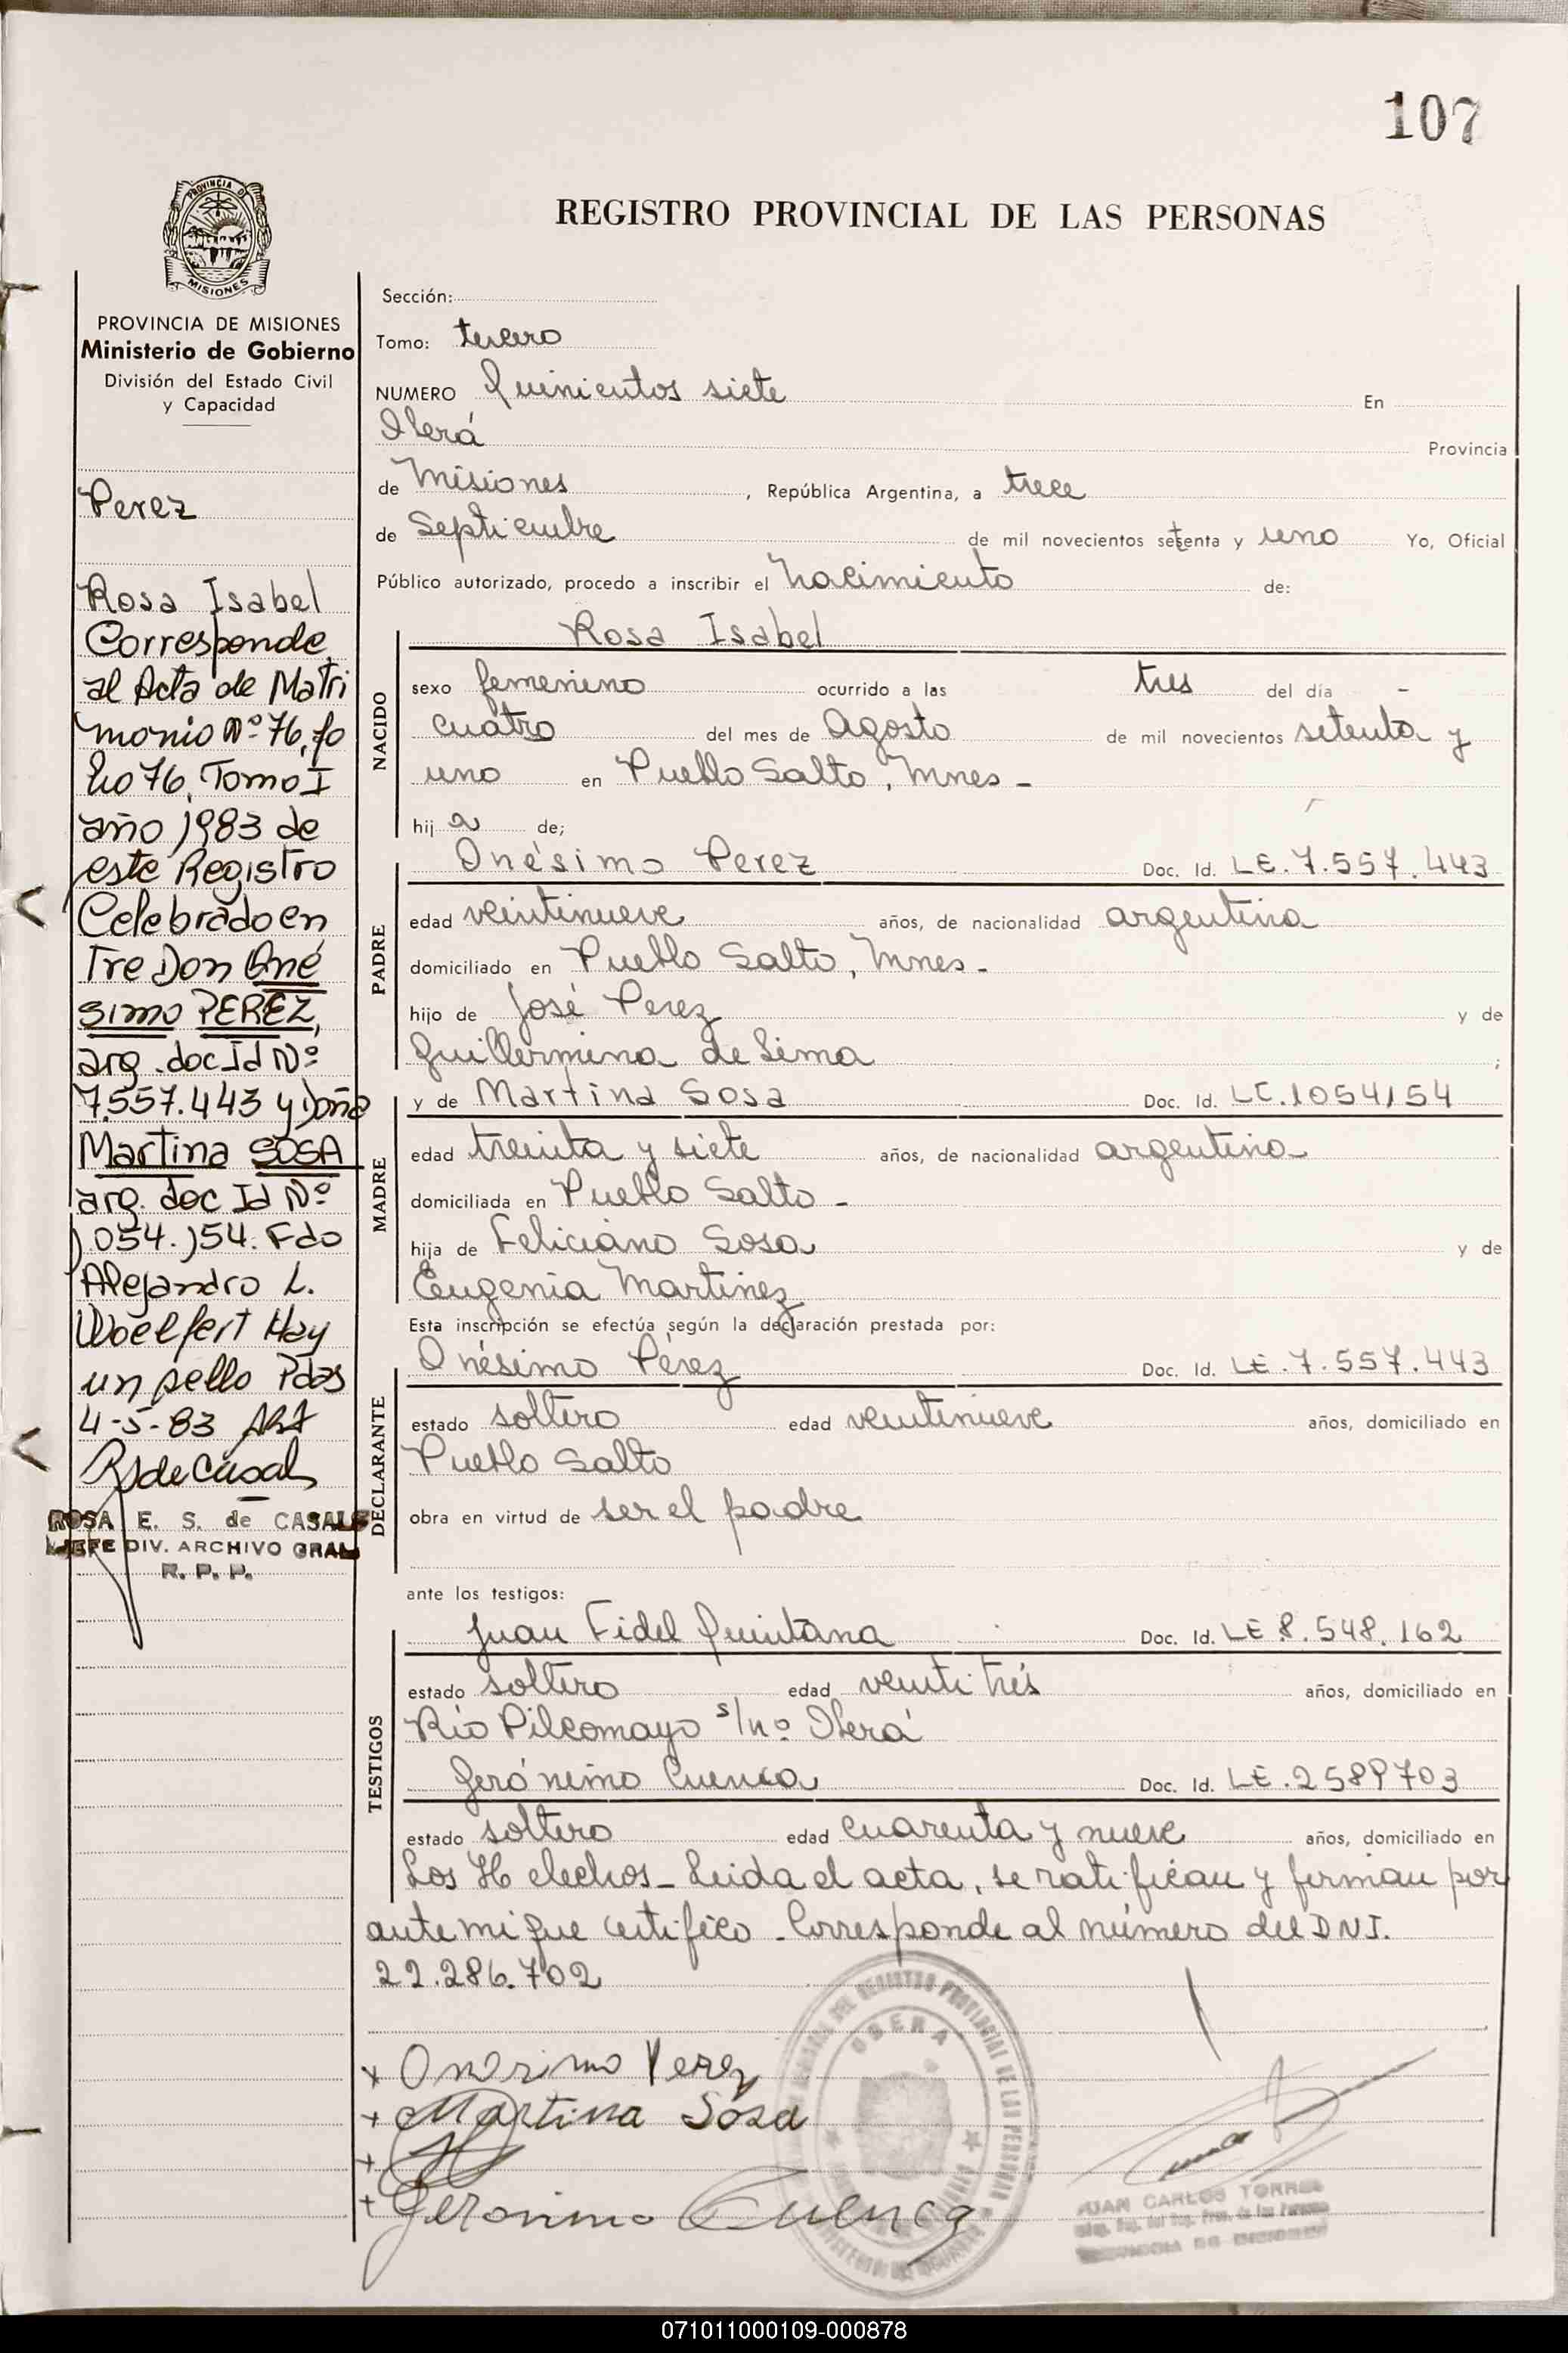 107
PROVINCIA DE
MISIONES
REGISTRO PROVINCIAL DE LAS PERSONAS
PROVINCIA DE MISIONES
Ministerio de Gobierno
División del Estado Civil
y Capacidad
Perez
Rosa Isabel
Corresponde
al Acta de Matri
monio Nº 76, fo
lio 76, Tomo I
año 1983 de
este Registro
Celebrado en
Tre Don Oné
simo PEREZ,
arg. doc Id Nº
7.557.443 y Doña
Martina SOSA
arg. doc Id Nº
1.054.154. Fdo
Alejandro L.
Woelfert Hay
un sello Pdas
4-5-83
RSdeCasals
ROSA E. S. de CASALS
JEFE DIV. ARCHIVO GRAL
R. P. P.
Sección:
Tomo: tercero
NUMERO Quinientos siete En
Oberá Provincia
de Misiones, República Argentina, a trece
de Septiembre de mil novecientos setenta y uno Yo, Oficial
Público autorizado, procedo a inscribir el nacimiento de:
NACIDO
Rosa Isabel
sexo femenino ocurrido a las tres del día -
cuatro del mes de Agosto de mil novecientos setenta y
uno en Pueblo Salto, Mnes -
hij a de;
PADRE
Onésimo Perez Doc. Id. LE. 7.557.443
edad veintinueve años, de nacionalidad argentina
domiciliado en Pueblo Salto, Mnes -
hijo de José Perez y de
Guillermina de Lima ;
MADRE
y de Martina Sosa Doc. Id. LC. 1054154
edad treinta y siete años, de nacionalidad argentina
domiciliada en Pueblo Salto -
hija de Feliciano Sosa y de
Eugenia Martinez
Esta inscripción se efectúa según la declaración prestada por:
DECLARANTE
Onésimo Pérez Doc. Id. LE. 7.557.443
estado soltero edad veintinueve años, domiciliado en
Pueblo Salto
obra en virtud de ser el padre
ante los testigos:
TESTIGOS
Juan Fidel Quintana Doc. Id. LE 8.548.162
estado soltero edad veinti trés años, domiciliado en
Río Pilcomayo s/nº Oberá
Gerónimo Cuenca Doc. Id. LE. 2589703
estado soltero edad cuarenta y nueve años, domiciliado en
Los Helechos - Leida el acta, se ratifican y firman por
ante mi que certifico - Corresponde al número del DNI.
22.286.702
x Onesimo Perez
+ Martina Sosa
+
+ Geronimo Cuenca
OBERA
JUAN CARLOS TORRES
071011000109-000878